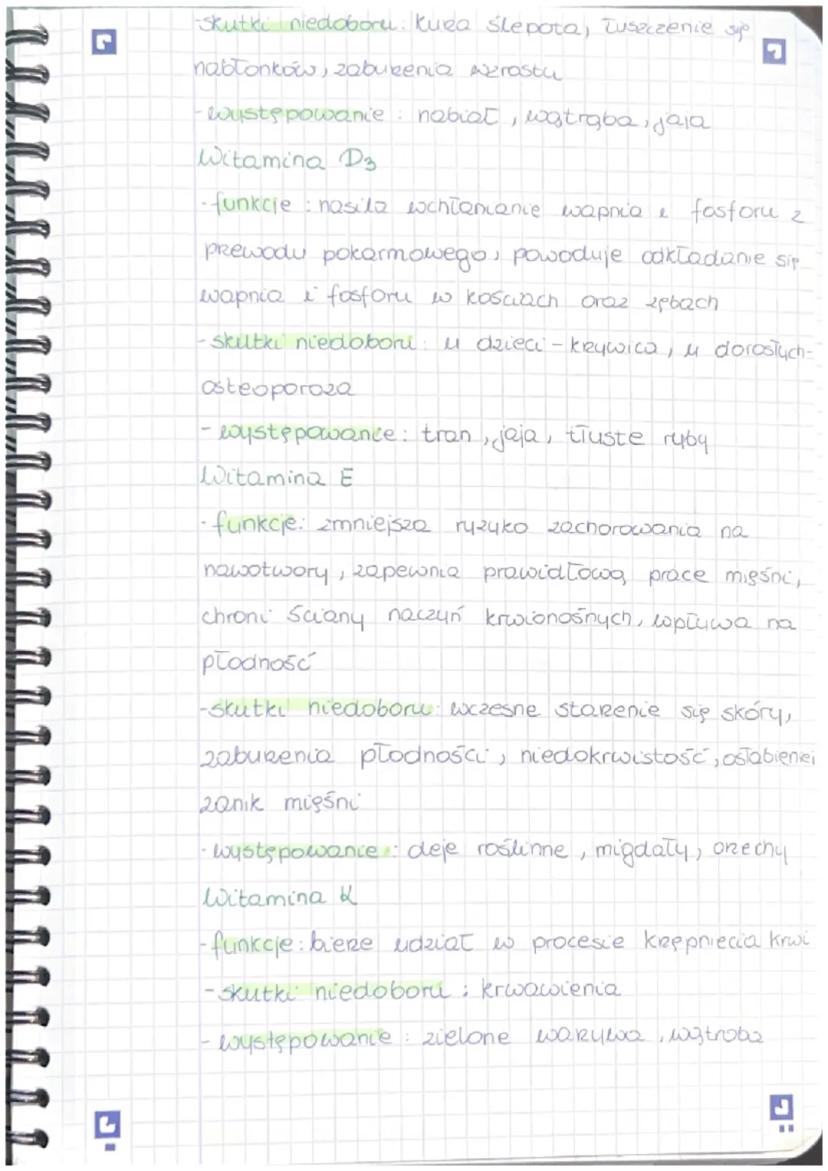 -skutki niedoboru: kurza ślepota, łuszczenie się
nabłonków, zaburzenia wzrostu
-występowanie: nabiał, wątroba, jaja
Witamina D3
-funkcje: nasila wchłanianie wapnia i fosforu z
przewodu pokarmowego, powoduje odkładanie się
wapnia i fosforu w kościach oraz zębach
-skutki niedoboru: u dzieci-krzywica, u dorosłych-
osteoporoza
-występowanie: tran, jaja, tłuste ryby
Witamina E
-funkcje: zmniejsza ryzyko zachorowania na
nowotwory, zapewnia prawidłową prace mięśni,
chroni ściany naczyń krwionośnych, wpływa na
płodność
-skutki niedoboru: wczesne starzenie się skóry,
zaburzenia płodności, niedokrwistość, osłabienie i
zanik mięśni
-występowanie: oleje roślinne, migdały, orzechy
Witamina K
-funkcje: bierze udział w procesie krzepnięcia krwi
-skutki niedoboru: krwawienia
-występowanie: zielone warzywa, wątroba